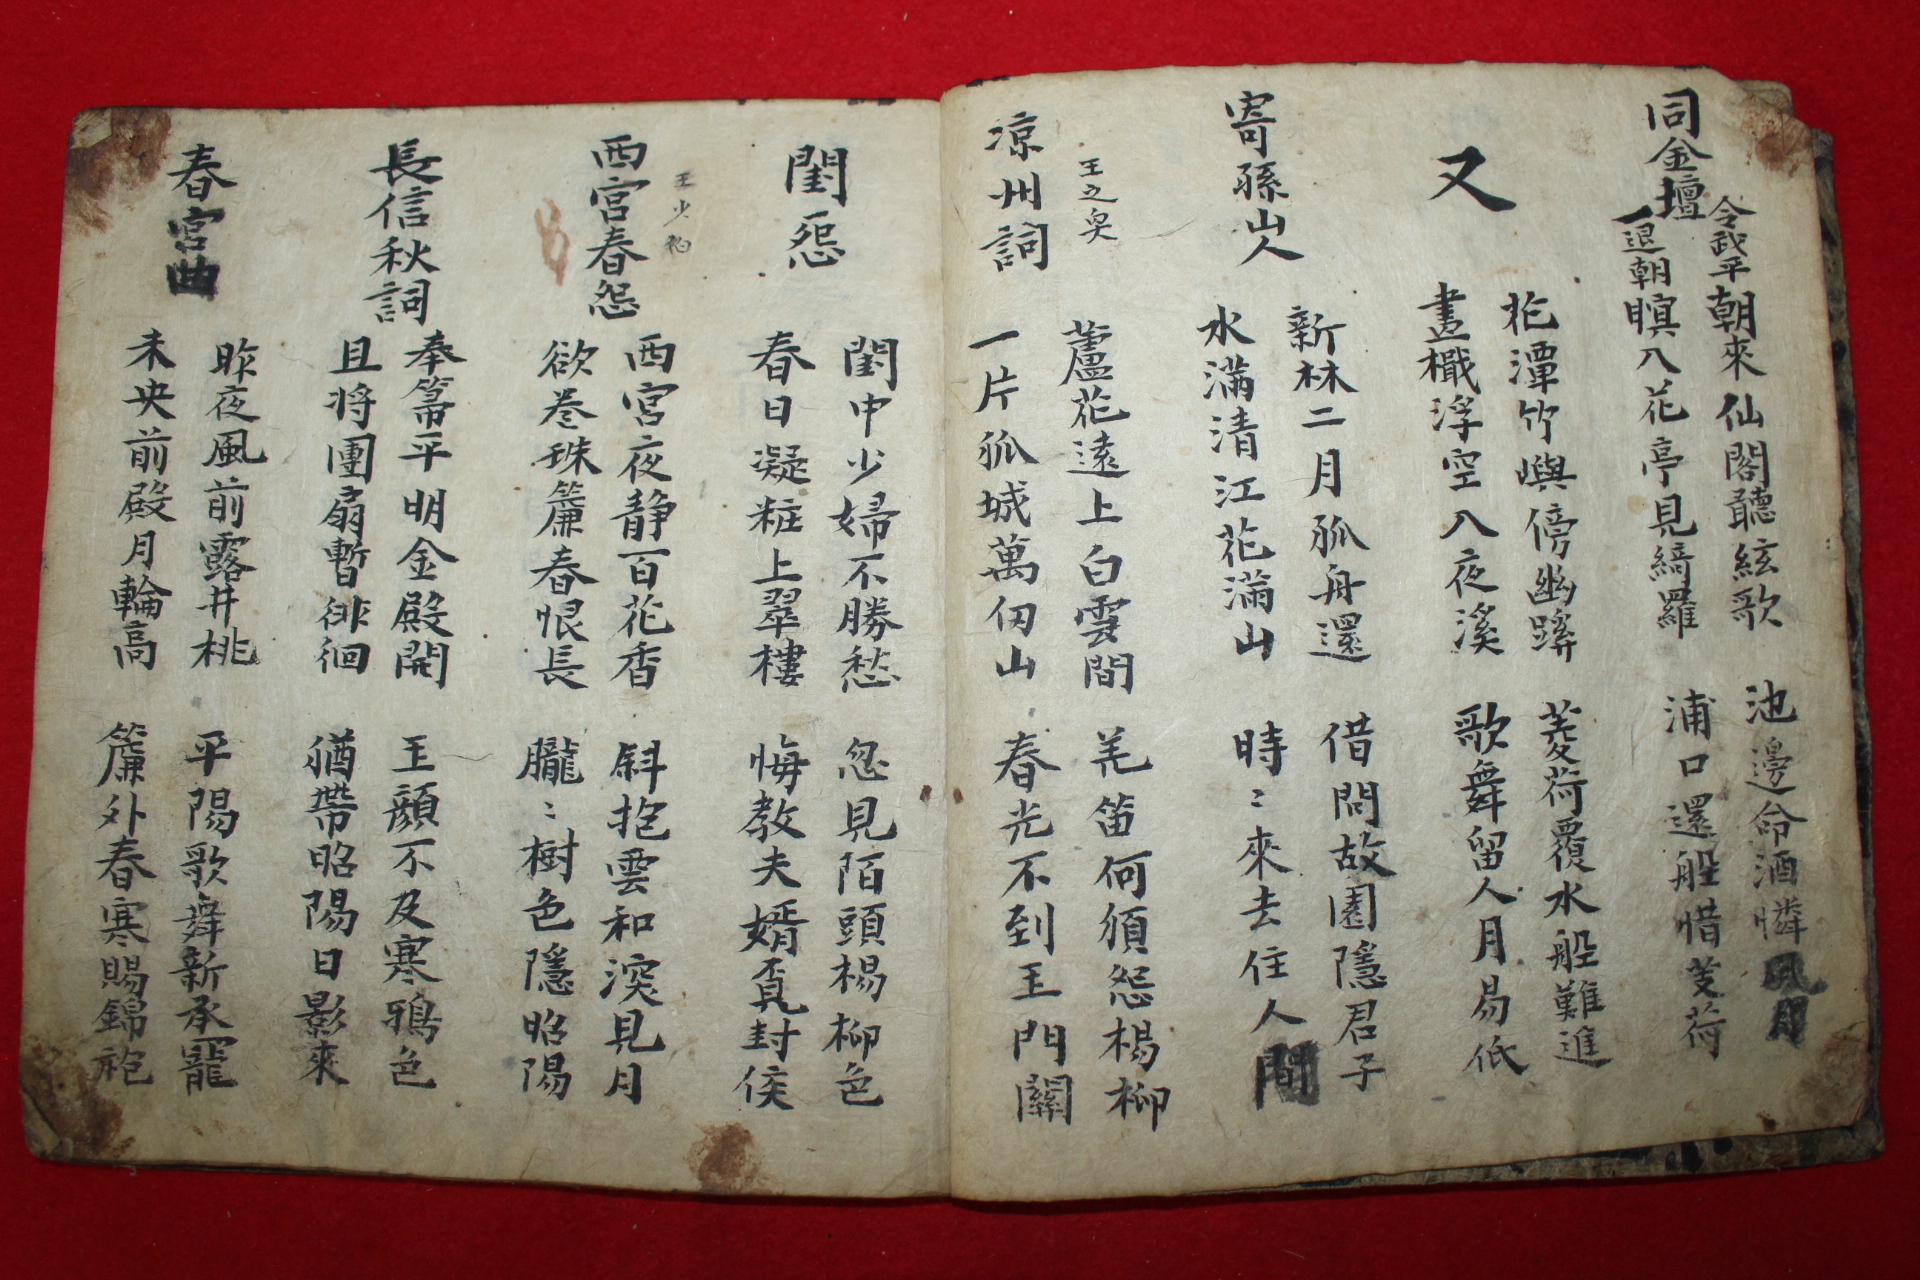 同金壇令武平
一退朝
朝來仙閣聽絃歌
暝入花亭見綺羅
池邊命酒憐風月
浦口還船惜芰荷
又
花潭竹嶼傍幽蹊
畫檝浮空入夜溪
菱荷覆水船難進
歌舞留人月易低
寄孫山人
新林二月孤舟還
水滿清江花滿山
借問故園隱君子
時〻來去住人間
王之奐
涼州詞
蘆花遠上白雲間
一片孤城萬仞山
羌笛何須怨楊柳
春光不到玉門關
閨怨
閨中少婦不勝愁
春日凝粧上翠樓
忽見陌頭楊柳色
悔教夫婿覓封侯
王少伯
西宮春怨
西宮夜静百花香
欲卷珠簾春恨長
斜抱雲和深見月
朧〻樹色隱昭陽
長信秋詞
奉箒平明金殿開
且將團扇暫徘徊
玉顔不及寒鴉色
猶帶昭陽日影來
春宮曲
昨夜風前露井桃
未央前殿月輪高
平陽歌舞新承寵
簾外春寒賜錦袍